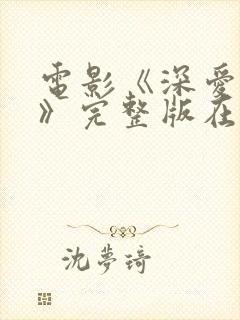 電影《深愛
》完整版在
沈夢琦